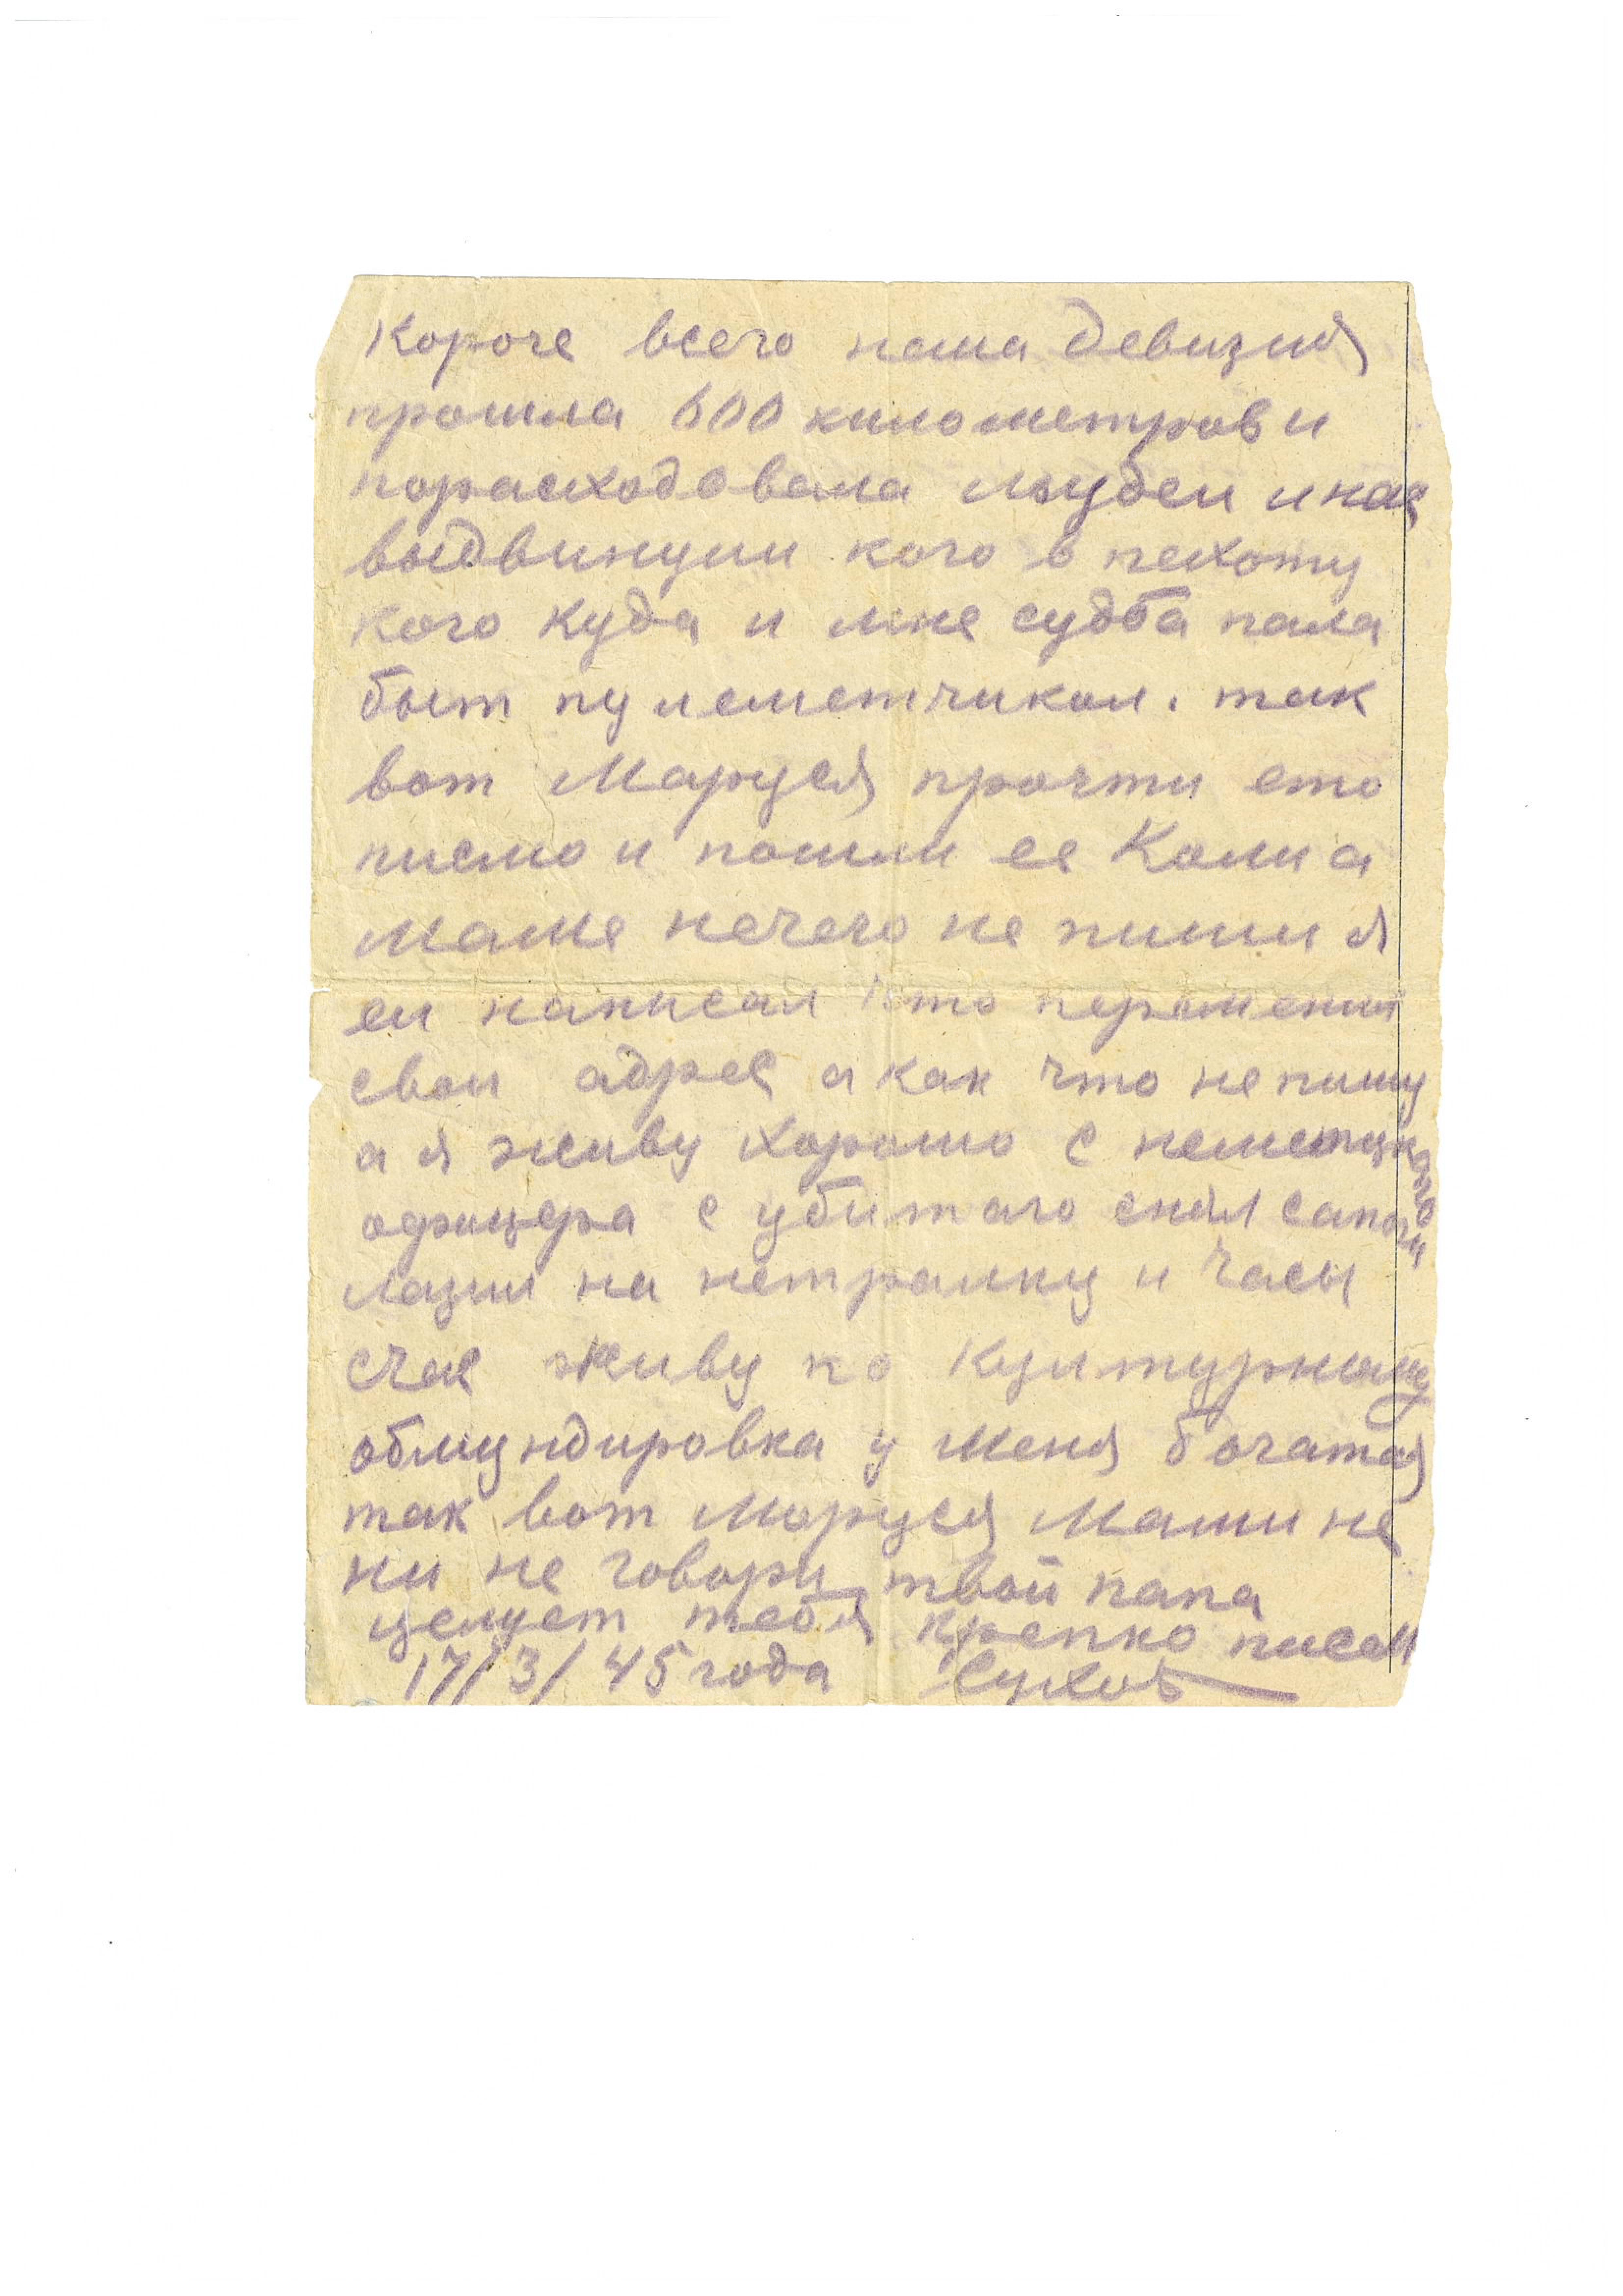 Короче всего наша девизия
прошла 600 километров и
порасходовала людеи и нас
выдвинули кого в пехоту
кого куда и мне судба пала
быт пулеметчиком. так
вот Маруся прочти ето
писмо и пошли ее Коли а
маме нечего не пиши я
еи написал что переменил
свои адрес а как что не пишу
а я живу хорошо с неметцкаго
офицера с убитаго снял сапоги
лазил на нетралку и часы
счас живу по културному
обмундировка у меня богатая
так вот Маруся Мами не
ни не говори твой папа
целует тебя крепко писал
17/3/45 года Сухов